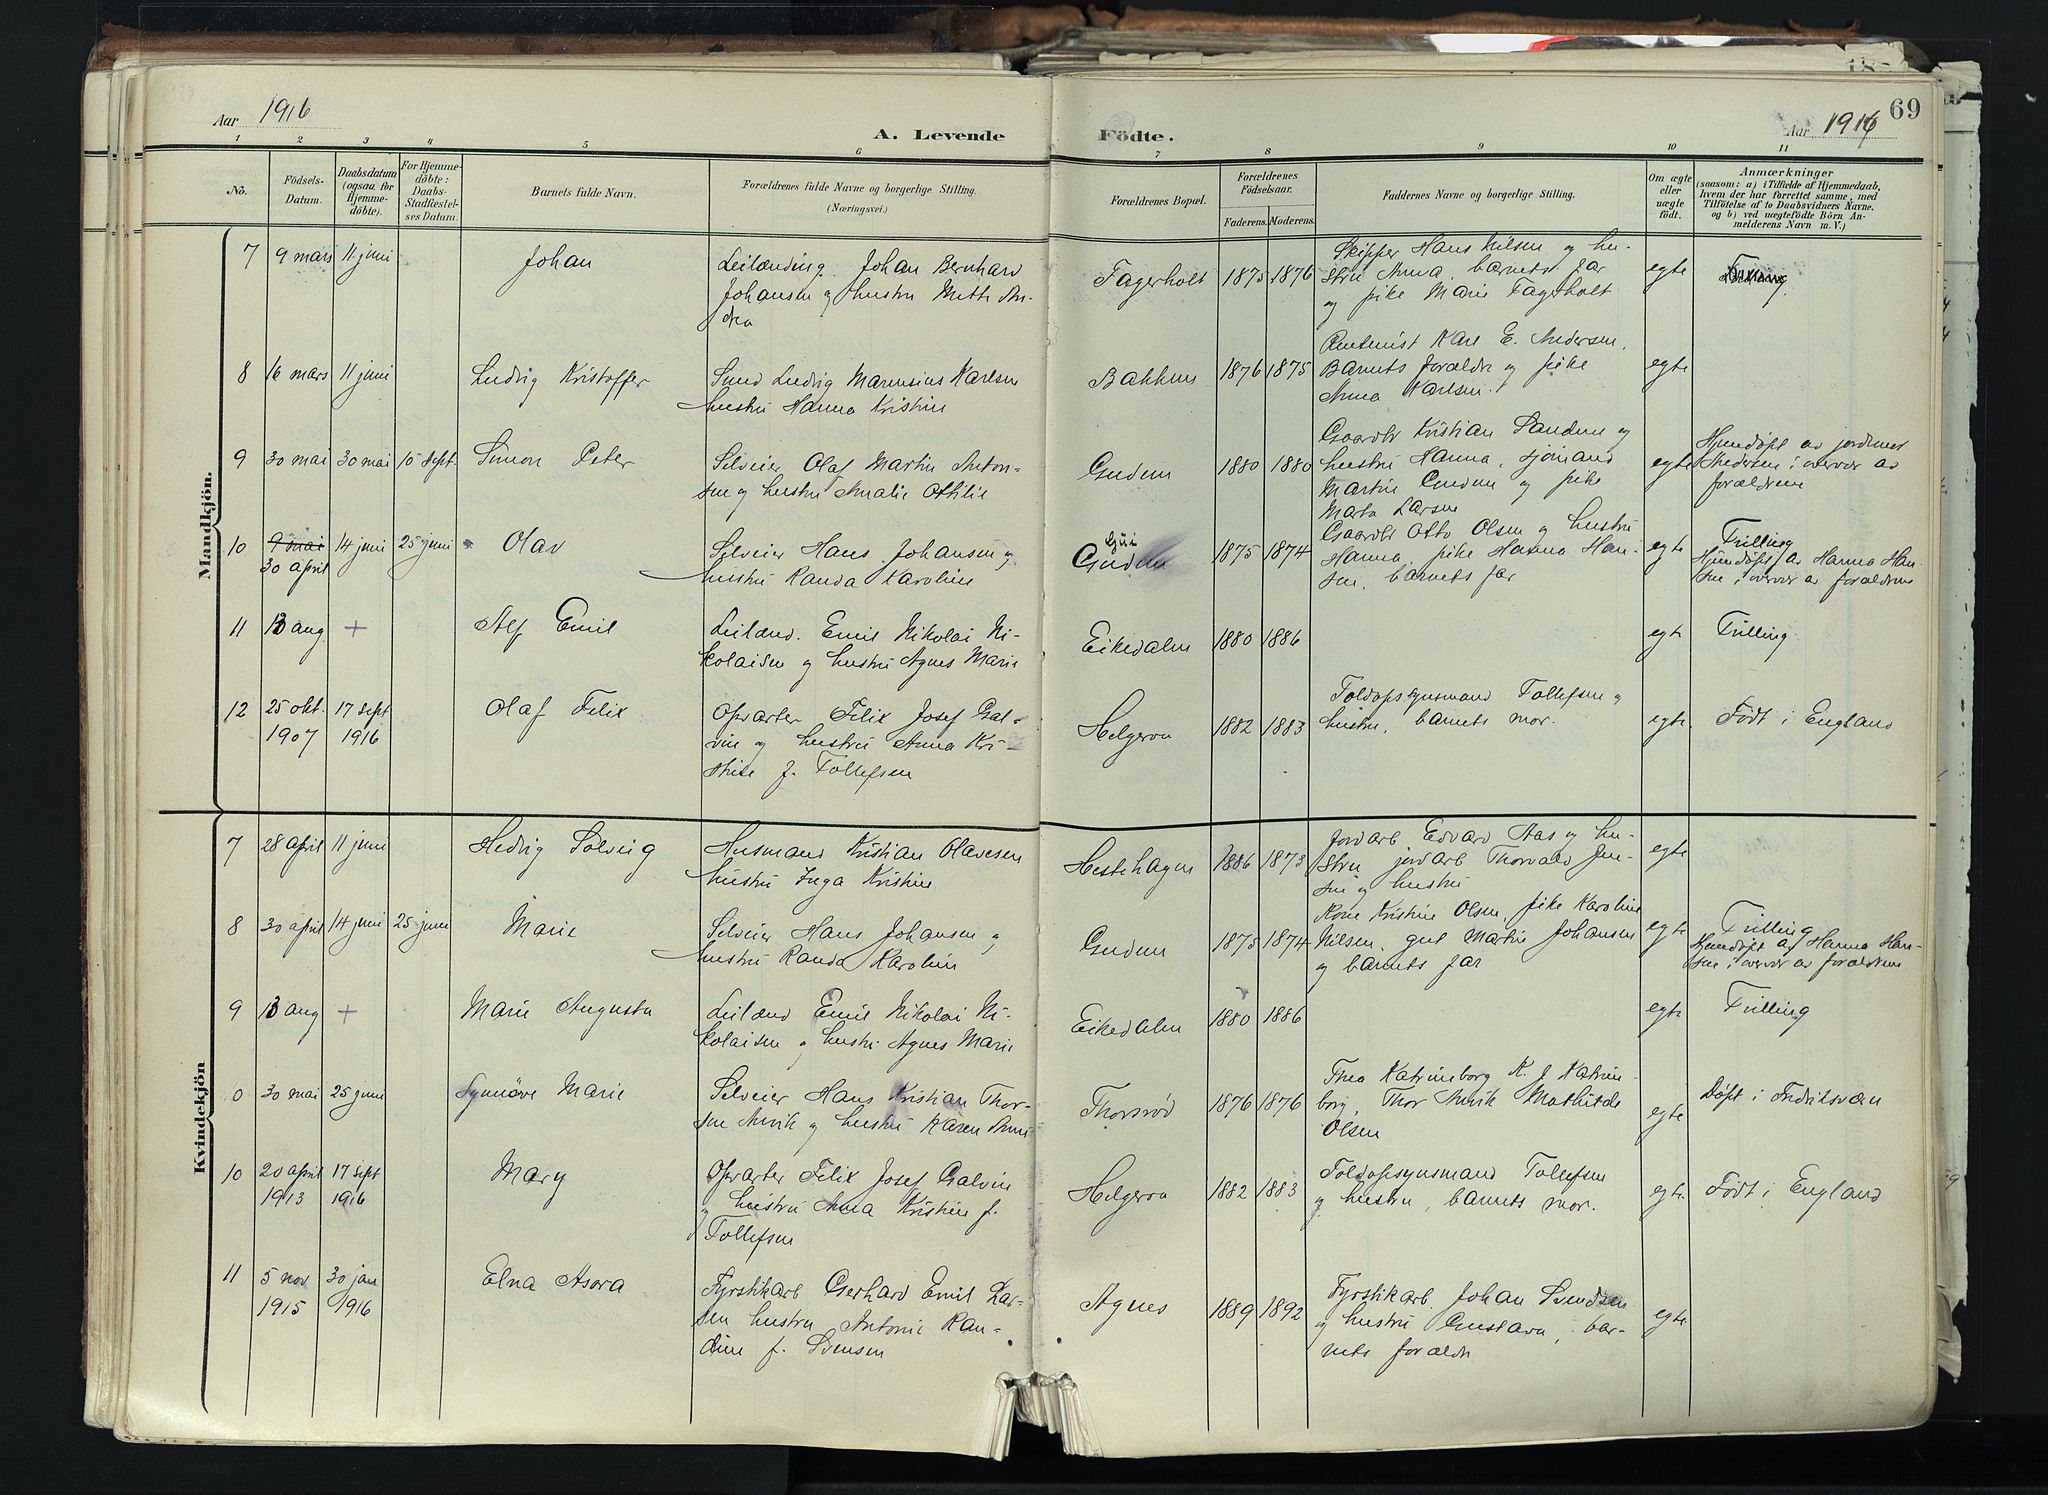 69
Aar 1916
A. Levende
Födte.
Aar 1916
1 2 3 4 5 6 7 8 9 10 11
No.
Födsels-
Datum.
Daabsdatum
(ogsaa for
Hjemme-
döbte).
For Hjemme-
döbte:
Daabs-
Stadfæstel-
ses Datum.
Barnets fulde Navn.
Forældrenes fulde Navne og borgerlige Stilling.
(Næringsvei.)
Forældrenes Bopæl.
Forældrenes
Födselsaar.
Faderens. Moderens.
Faddernes Navne og borgerlige Stilling.
Om ægte
eller
uægte
födt.
Anmærkninger
(saasom: a) i Tilfælde af Hjemmedaab,
hvem der har forrettet samme, med
Tilföielse af to Daabsvidners Navne.
og b) ved uægtefödte Börn An-
melderens Navn m. V.)
Mandkjön.
7 9 mars 11 juni Johan
Leilænding Johan Bernhard
Johansen og hustru Mette An-
drea
Fagerholt 1875 1876
Skipper Hans Nilsen og hu-
stru Anna, barnets far
og pike Marie Fagerholt
egte
8 16 mars 11 juni Ludvig Kristoffer
Smed Ludvig Marensius Karlsen
hustru Hanna Kristine
Bakken 1876 1875
Karl E. Andersen,
Barnets forældre og pike
Anna Karlsen.
egte
9 30 mai 30 mai 10 sept. Simon Peter
Selveier Olaf Martin Anton-
sen og hustru Amalie Othilie
Gudem 1880 1880
Gaardbr Kristian Sanden og
hustru Hanna, sjømand
Martin Gudem og pike
Marta Larsen
egte
Hjemdøpt av jordmor
Andersen i overvær av
forældrene
10 9 mai 14 juni 25 juni Olav
30 april
Selveier Hans Johansen og
hustru Randa Karoline
Gudem 1875 1874
Gaardbr Otto Olsen og hustru
Hanna pike Hanna Han-
sen, barnets far
egte
Tvilling
Hjemdøpt av Hanna Han-
sen i overvær av forældrene
11 13 aug + Alf Emil
Leilænd. Emil Nikolai Ni-
kolaisen og hustru Agnes Marie
Eikedalen 1880 1886
egte Tvilling
12 25 okt. 17 sept Olaf Felix
1907 1916
Opvarter Felix Josef Gal-
vin og hustru Anna Kri-
stine f. Tollefsen
Helgeroa 1882 1883
Toldopsynsmand Tollefsen og
hustru, barnets mor.
egte Født i England
Kvindekjön
7 28 april 11 juni Hedvig Solveig
Husmand Kristian Olavesen
hustru Inga Kristine
Hestehagen 1886 1873
Jordarb Edvard Aas og hu-
stru jordarb Thorvald Jen-
sen og hustru
egte
8 30 april 14 juni 25 juni Marie
Selveier Hans Johansen og
hustru Randa Karoline
Gudem 1875 1874
Kone Kristine Olsen, pike Karoline
Nilsen, gut Martin Johansen
og barnets far
egte
Tvilling
Hjemdøpt av Hanna Han-
sen i overvær av forældrene
9 13 aug + Marie Augusta
Leilænd Emil Nikolai Ni-
kolaisen og hustru Agnes Marie
Eikedalen 1880 1886
egte Tvilling
0 30 mai 25 juni Synnøve Marie
Selveier Hans Kristian Thor-
sen Anvik og hustru Karen Anni
Thorsrød 1876 1876
Thea Katrineborg K. J. Katrine-
borg, Thor Anvik Mathilde
Olsen
egte
Døpt i Fredriksværn
10 20 april 17 sept Mary
1913 1916
Opvarter Felix Josef Galvin
og hustru Anna Kristine f.
Tollefsen
Helgeroa 1882 1883
Toldopsynsmand Tollefsen
og hustru, barnets mor.
egte Født i England
11 5 nov 30 jan Elna Asora
1915 1916
Fyrstikarb Gerhard Emil Lar-
sen hustru Antonie Ran-
dine f. Svensen
Agnes 1889 1892
Fyrstikarb. Johan Svendsen
og hustru Gustava, bar-
nets forældre
egte